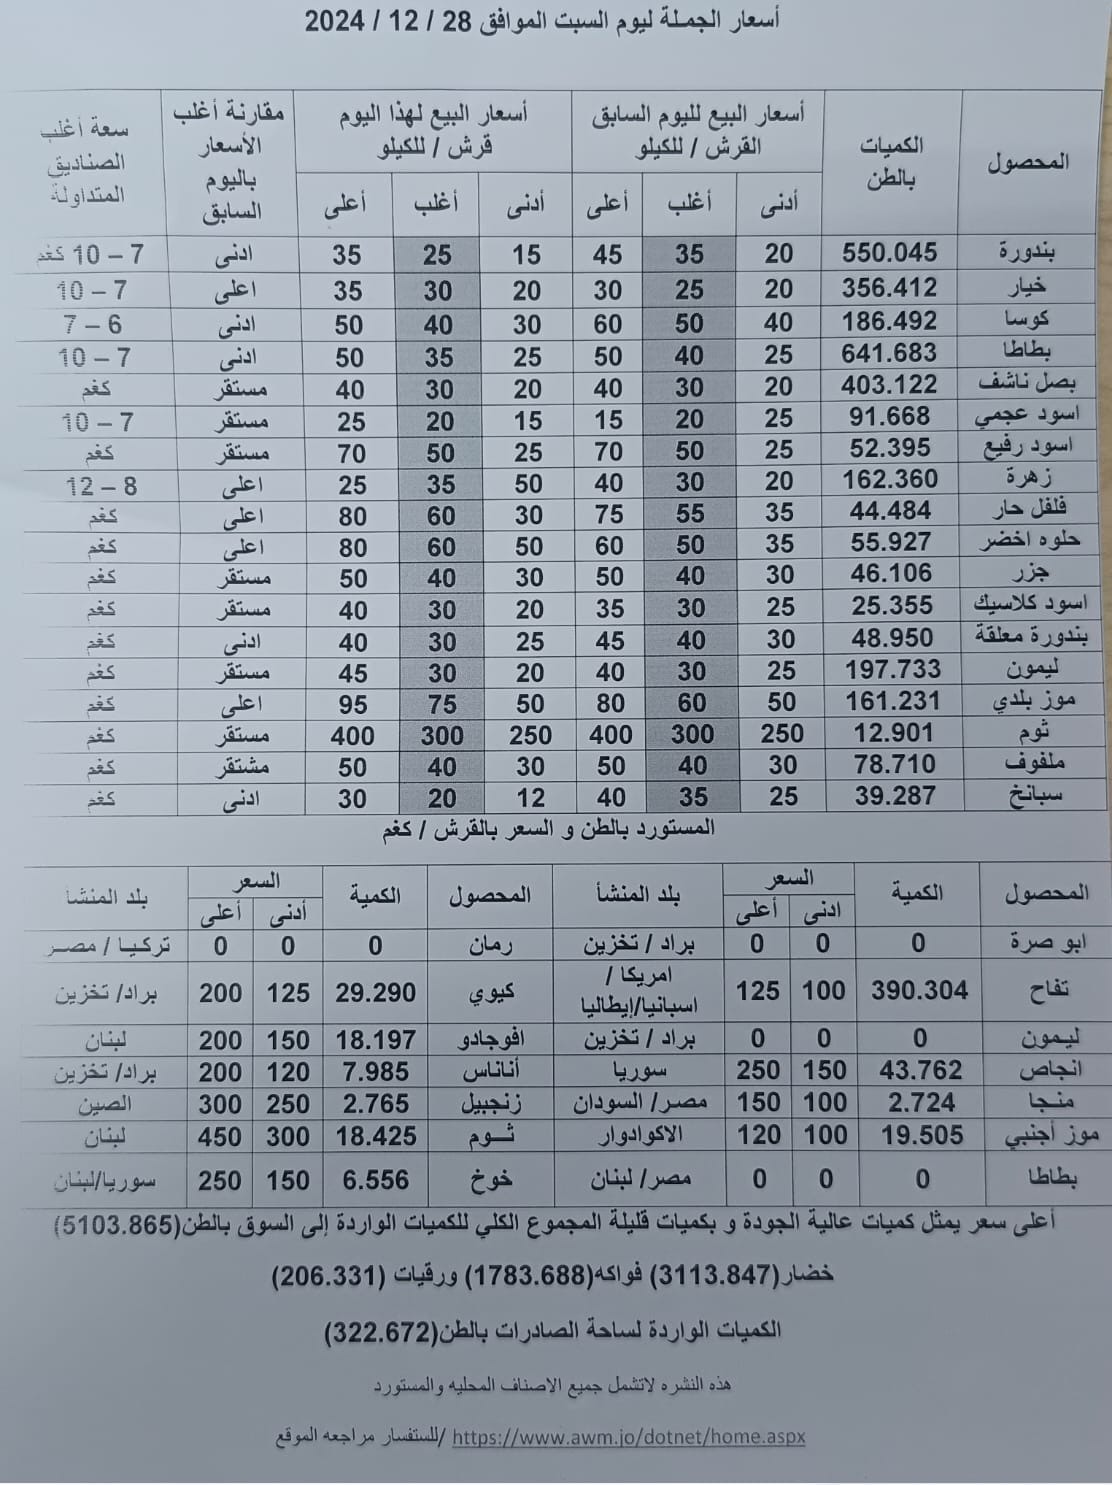 أسعار الجملة ليوم السبت الموافق 28 / 12 / 2024
المحصول الكميات بالطن أسعار البيع لليوم السابق القرش / للكيلو أسعار البيع لهذا اليوم قرش / للكيلو مقارنة أغلب الأسعار باليوم السابق سعة أغلب الصناديق المتداولة
أدنى أغلب أعلى أدنى أغلب أعلى
بندورة 550.045 20 35 45 15 25 35 ادنى 7 – 10 كغم
خيار 356.412 20 25 30 20 30 35 اعلى 7 – 10
كوسا 186.492 40 50 60 30 40 50 ادنى 6 – 7
بطاطا 641.683 25 40 50 25 35 50 ادنى 7 – 10
بصل ناشف 403.122 20 30 40 20 30 40 مستقر كغم
اسود عجمي 91.668 25 20 15 15 20 25 مستقر 7 – 10
اسود رفيع 52.395 25 50 70 25 50 70 مستقر كغم
زهرة 162.360 20 30 40 50 35 25 اعلى 8 – 12
فلفل حار 44.484 35 55 75 30 60 80 اعلى كغم
حلوه اخضر 55.927 35 50 60 50 60 80 اعلى كغم
جزر 46.106 30 40 50 30 40 50 مستقر كغم
اسود كلاسيك 25.355 25 30 35 20 30 40 مستقر كغم
بندورة معلقة 48.950 30 40 45 25 30 40 ادنى كغم
ليمون 197.733 25 30 40 20 30 45 مستقر كغم
موز بلدي 161.231 50 60 80 50 75 95 اعلى كغم
ثوم 12.901 250 300 400 250 300 400 مستقر كغم
ملفوف 78.710 30 40 50 30 40 50 مشتقر كغم
سبانخ 39.287 25 35 40 12 20 30 ادنى كغم
المستورد بالطن و السعر بالقرش / كغم
المحصول الكمية السعر بلد المنشأ المحصول الكمية السعر بلد المنشأ
ادنى أعلى أدنى أعلى
ابو صرة 0 0 0 براد / تخزين رمان 0 0 0 تركيا / مصر
تفاح 390.304 100 125 امريكا / اسبانيا/إيطاليا كيوي 29.290 125 200 براد/ تخزين
ليمون 0 0 0 براد / تخزين افوجادو 18.197 150 200 لبنان
انجاص 43.762 150 250 سوريا أناناس 7.985 120 200 براد/ تخزين
منجا 2.724 100 150 مصر/ السودان زنجبيل 2.765 250 300 الصين
موز أجنبي 19.505 100 120 الاكوادوار ثوم 18.425 300 450 لبنان
بطاطا 0 0 0 مصر/ لبنان خوخ 6.556 150 250 سوريا/لبنان
أعلى سعر يمثل كميات عالية الجودة و بكميات قليلة المجموع الكلي للكميات الواردة إلى السوق بالطن(5103.865)
خضار(3113.847) فواكه(1783.688) ورقيات (206.331)
الكميات الواردة لساحة الصادرات بالطن(322.672)
هذه النشره لاتشمل جميع الاصناف المحليه والمستورد
https://www.awm.jo/dotnet/home.aspx /للستفسار مراجعه الموقع